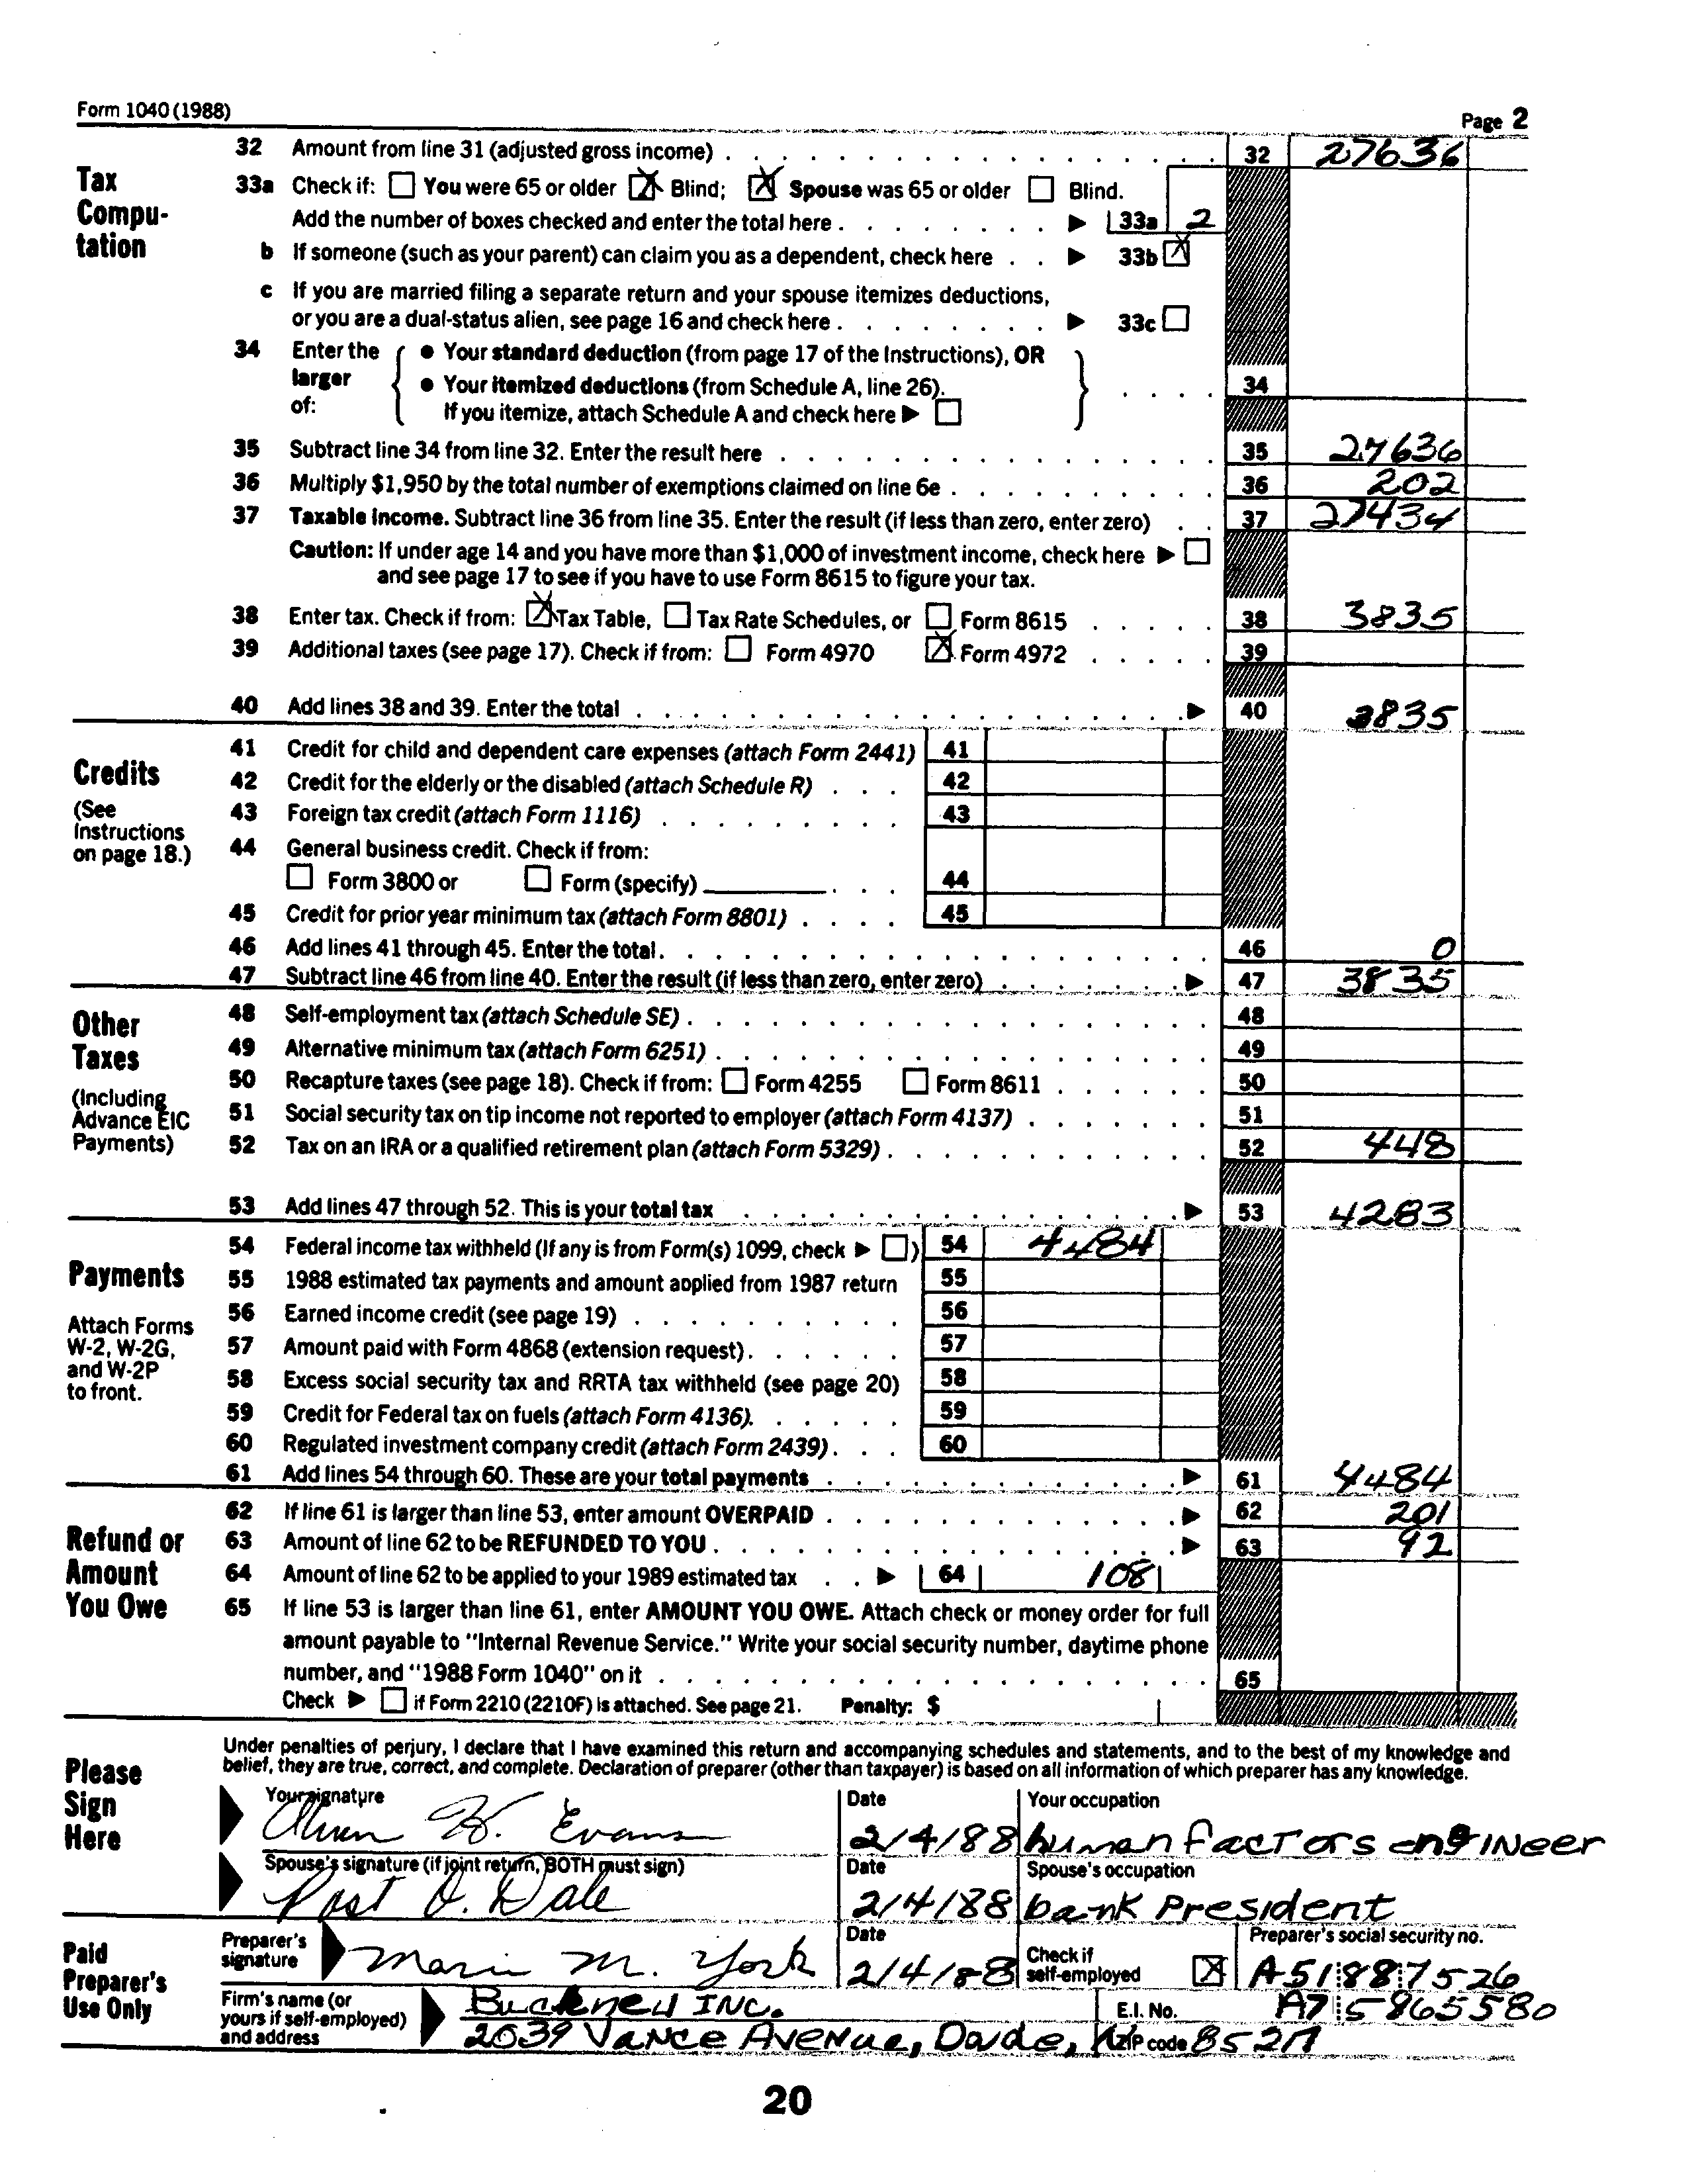 Form 1040 (1988) Page 2
Tax Computation
32 Amount from line 31 (adjusted gross income) 32 27636
33a Check if: ☐ You were 65 or older ☒ Blind; ☒ Spouse was 65 or older ☐ Blind.
Add the number of boxes checked and enter the total here ▶ 33a 2
b If someone (such as your parent) can claim you as a dependent, check here ▶ 33b ☒
c If you are married filing a separate return and your spouse itemizes deductions,
or you are a dual-status alien, see page 16 and check here ▶ 33c ☐
34 Enter the larger of: { ● Your standard deduction (from page 17 of the Instructions), OR
● Your itemized deductions (from Schedule A, line 26).
If you itemize, attach Schedule A and check here ▶ ☐ } 34
35 Subtract line 34 from line 32. Enter the result here 35 27636
36 Multiply $1,950 by the total number of exemptions claimed on line 6e 36 202
37 Taxable income. Subtract line 36 from line 35. Enter the result (if less than zero, enter zero) 37 27434
Caution: If under age 14 and you have more than $1,000 of investment income, check here ▶ ☐
and see page 17 to see if you have to use Form 8615 to figure your tax.
38 Enter tax. Check if from: ☒ Tax Table, ☐ Tax Rate Schedules, or ☐ Form 8615 38 3835
39 Additional taxes (see page 17). Check if from: ☐ Form 4970 ☒ Form 4972 39
40 Add lines 38 and 39. Enter the total ▶ 40 3835
Credits
(See Instructions on page 18.)
41 Credit for child and dependent care expenses (attach Form 2441) 41
42 Credit for the elderly or the disabled (attach Schedule R) 42
43 Foreign tax credit (attach Form 1116) 43
44 General business credit. Check if from:
☐ Form 3800 or ☐ Form (specify) 44
45 Credit for prior year minimum tax (attach Form 8801) 45
46 Add lines 41 through 45. Enter the total. 46 0
47 Subtract line 46 from line 40. Enter the result (if less than zero, enter zero) ▶ 47 3835
Other Taxes
(Including Advance EIC Payments)
48 Self-employment tax (attach Schedule SE) 48
49 Alternative minimum tax (attach Form 6251) 49
50 Recapture taxes (see page 18). Check if from: ☐ Form 4255 ☐ Form 8611 50
51 Social security tax on tip income not reported to employer (attach Form 4137) 51
52 Tax on an IRA or a qualified retirement plan (attach Form 5329) 52 448
53 Add lines 47 through 52. This is your total tax ▶ 53 4283
Payments
Attach Forms W-2, W-2G, and W-2P to front.
54 Federal income tax withheld (If any is from Form(s) 1099, check ▶ ☐) 54 4484
55 1988 estimated tax payments and amount applied from 1987 return 55
56 Earned income credit (see page 19) 56
57 Amount paid with Form 4868 (extension request) 57
58 Excess social security tax and RRTA tax withheld (see page 20) 58
59 Credit for Federal tax on fuels (attach Form 4136). 59
60 Regulated investment company credit (attach Form 2439) 60
61 Add lines 54 through 60. These are your total payments ▶ 61 4484
Refund or Amount You Owe
62 If line 61 is larger than line 53, enter amount OVERPAID ▶ 62 201
63 Amount of line 62 to be REFUNDED TO YOU ▶ 63 92
64 Amount of line 62 to be applied to your 1989 estimated tax ▶ 64 108
65 If line 53 is larger than line 61, enter AMOUNT YOU OWE. Attach check or money order for full
amount payable to "Internal Revenue Service." Write your social security number, daytime phone
number, and "1988 Form 1040" on it 65
Check ▶ ☐ if Form 2210 (2210F) is attached. See page 21. Penalty: $
Please Sign Here
Under penalties of perjury, I declare that I have examined this return and accompanying schedules and statements, and to the best of my knowledge and
belief, they are true, correct, and complete. Declaration of preparer (other than taxpayer) is based on all information of which preparer has any knowledge.
Your signature Date Your occupation
H. Evans 2/4/88 human factors engineer
Spouse's signature (if joint return, BOTH must sign) Date Spouse's occupation
Post O. Dale 2/4/88 bank President
Paid Preparer's Use Only
Preparer's signature Date Check if self-employed ☒ Preparer's social security no.
M. York 2/4/88 A51887526
Firm's name (or yours if self-employed) and address E.I. No. A75865580
Bucknell INC.
2039 Vance Avenue, Dade, ZIP code
20